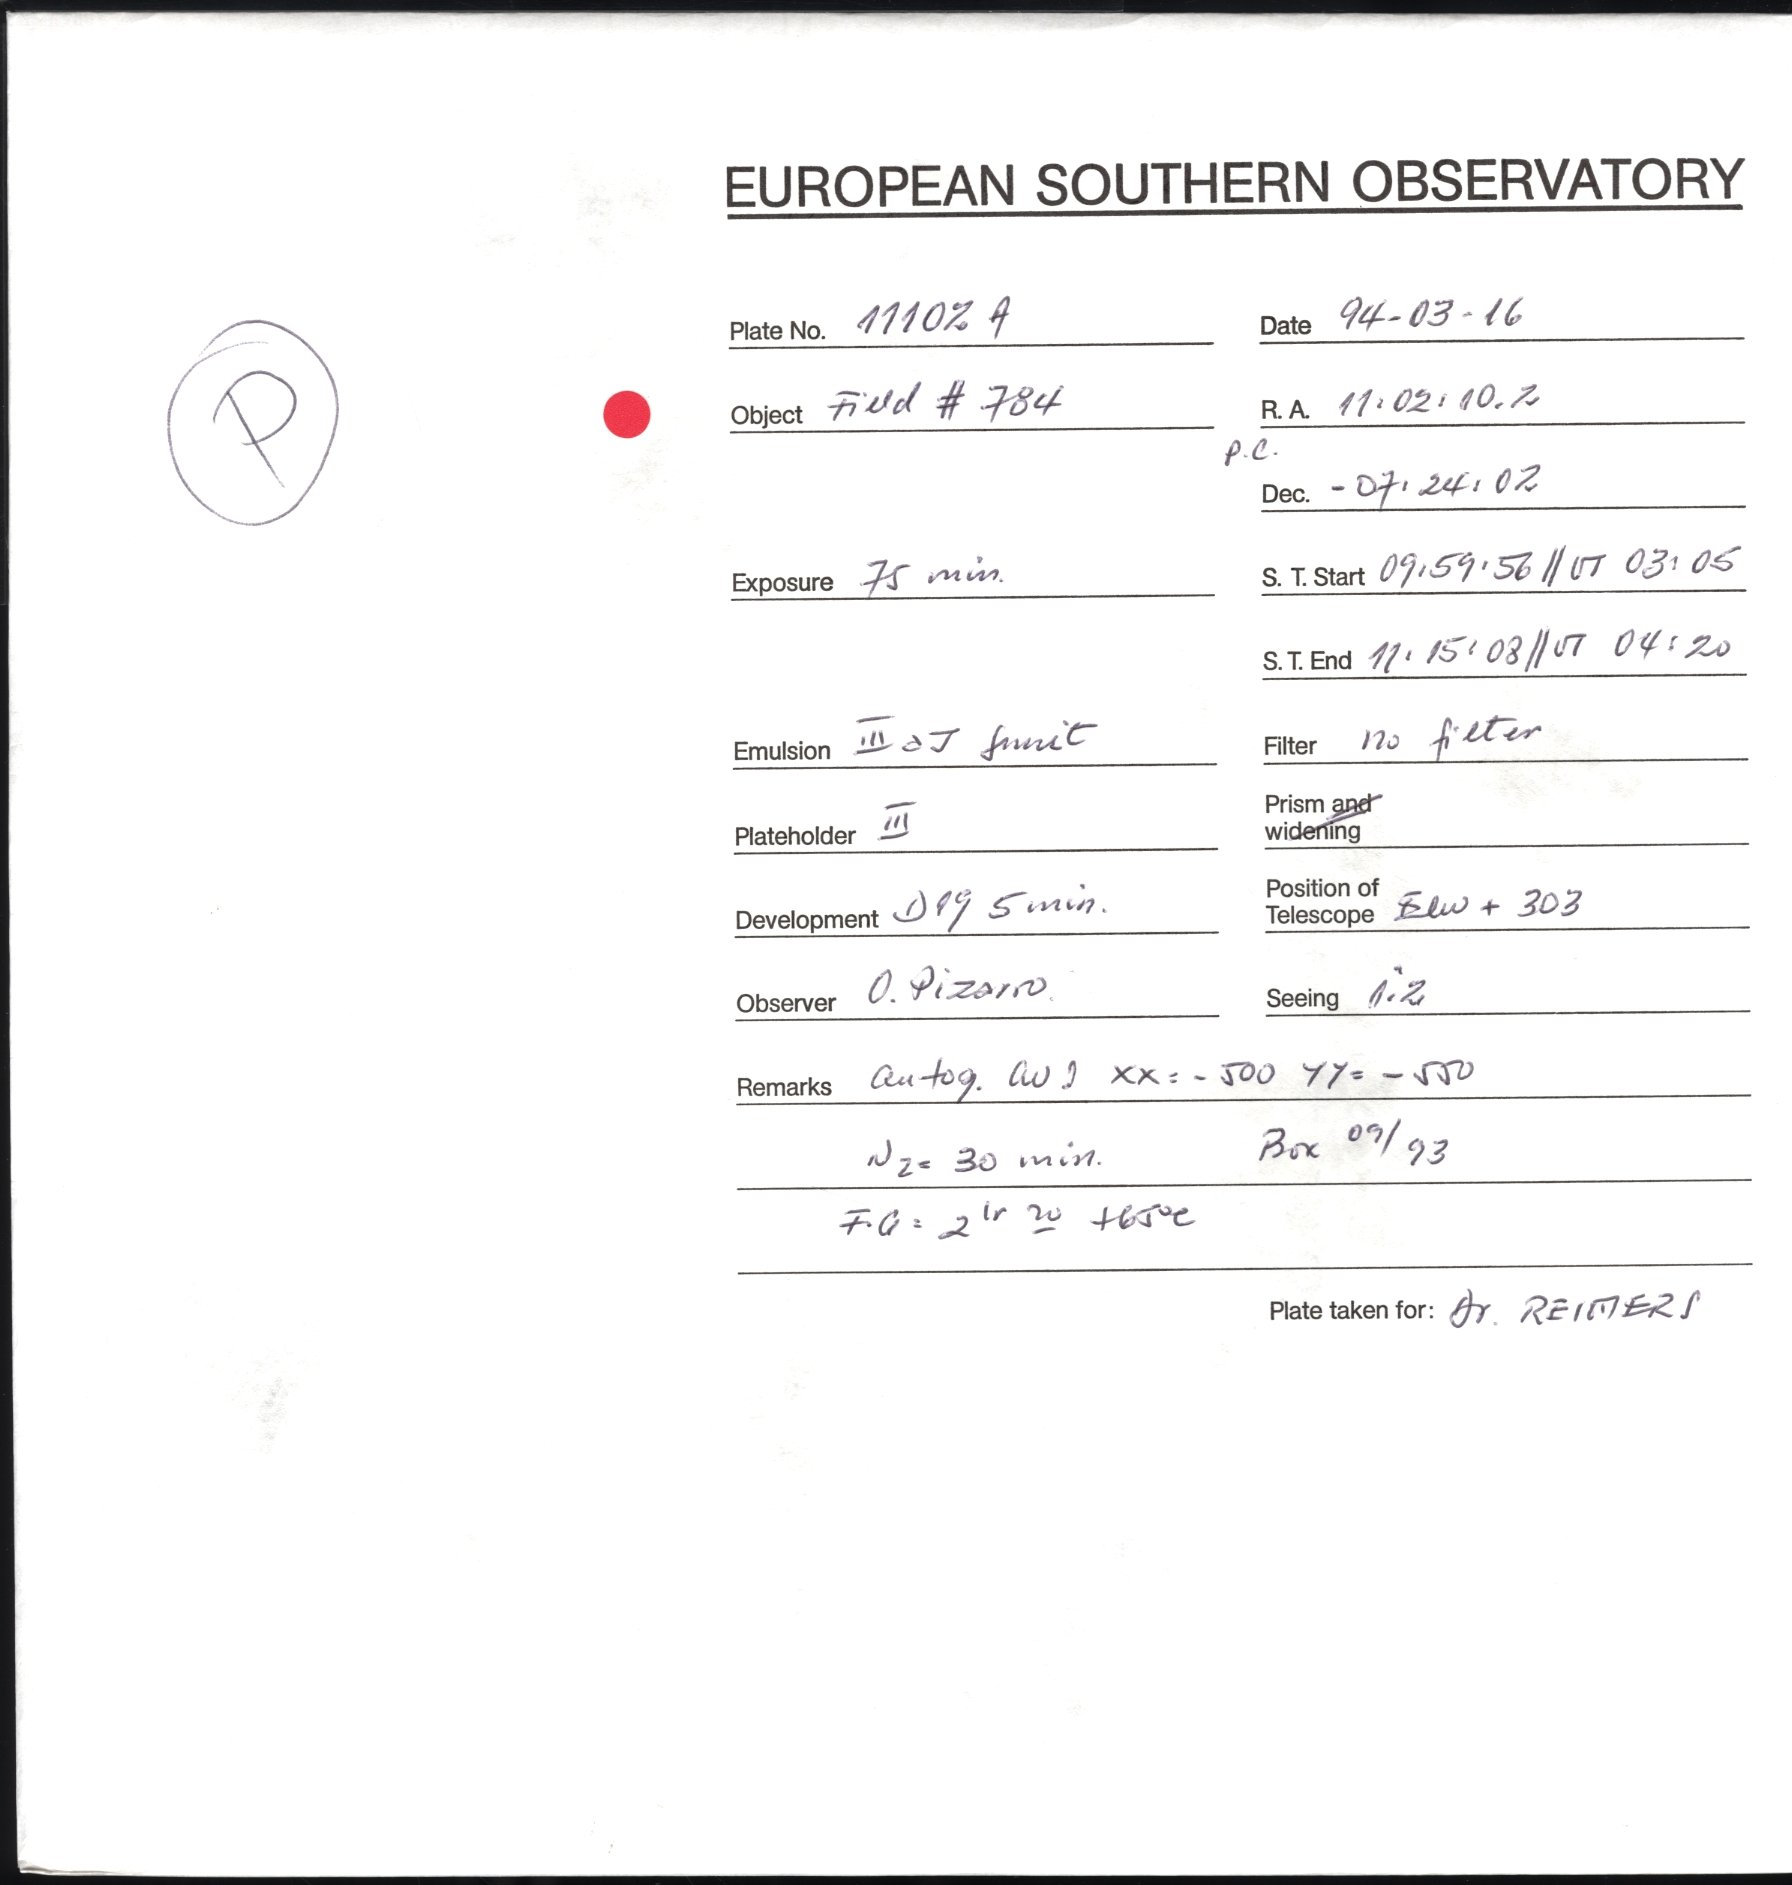 EUROPEAN SOUTHERN OBSERVATORY
Plate No. 11102 A
Date 94-03-16
P
Object Field # 784
R. A. 11:02:10.2
P.C.
Dec. -07:24:02
Exposure 75 min.
S. T. Start 09:59:56 // UT 03:05
S. T. End 11:15:08 // UT 04:20
Emulsion III aJ
Filter no filter
Plateholder III
Prism and
widening
Development D19 5 min.
Position of
Telescope + 303
Observer O. Pizarro.
Seeing 1".2
Remarks autog. XX = -500 YY = -550
N2 = 30 min. Box 09/93
F.G = 2 hr 20 +65°C
Plate taken for: Dr. REIMERS